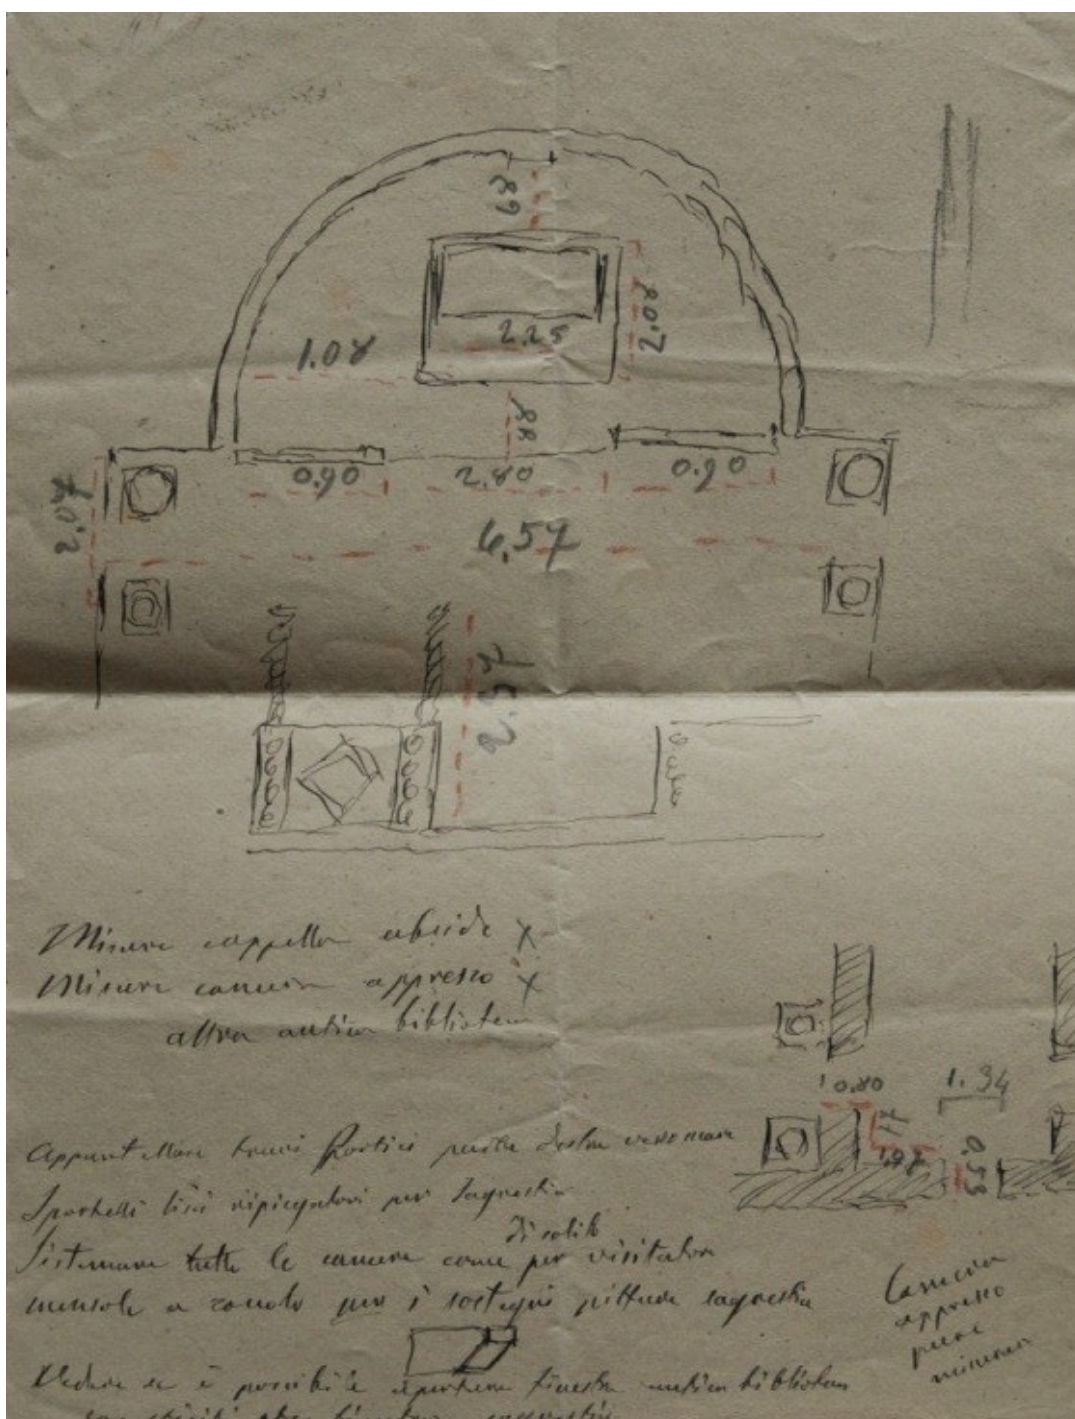 89
2.25
2.08
1.08
88
0.90
2.80
0.90
2.08
6,57
2.57
Misure cappella abside X
Misure camera appresso X
altra antica biblioteca
0.80
1.34
77
0.53
Appuntellare travi Portici parte destra verso mare
Sportelli lisci ripiegatori per Sagrestia
di solito
Sistemare tutte le camere come per visitatori
mensole a zoccolo per i sostegni pitture sagrestia
Camera
appresso
pure
misurare
Vedere se è possibile apertura finestra antica biblioteca